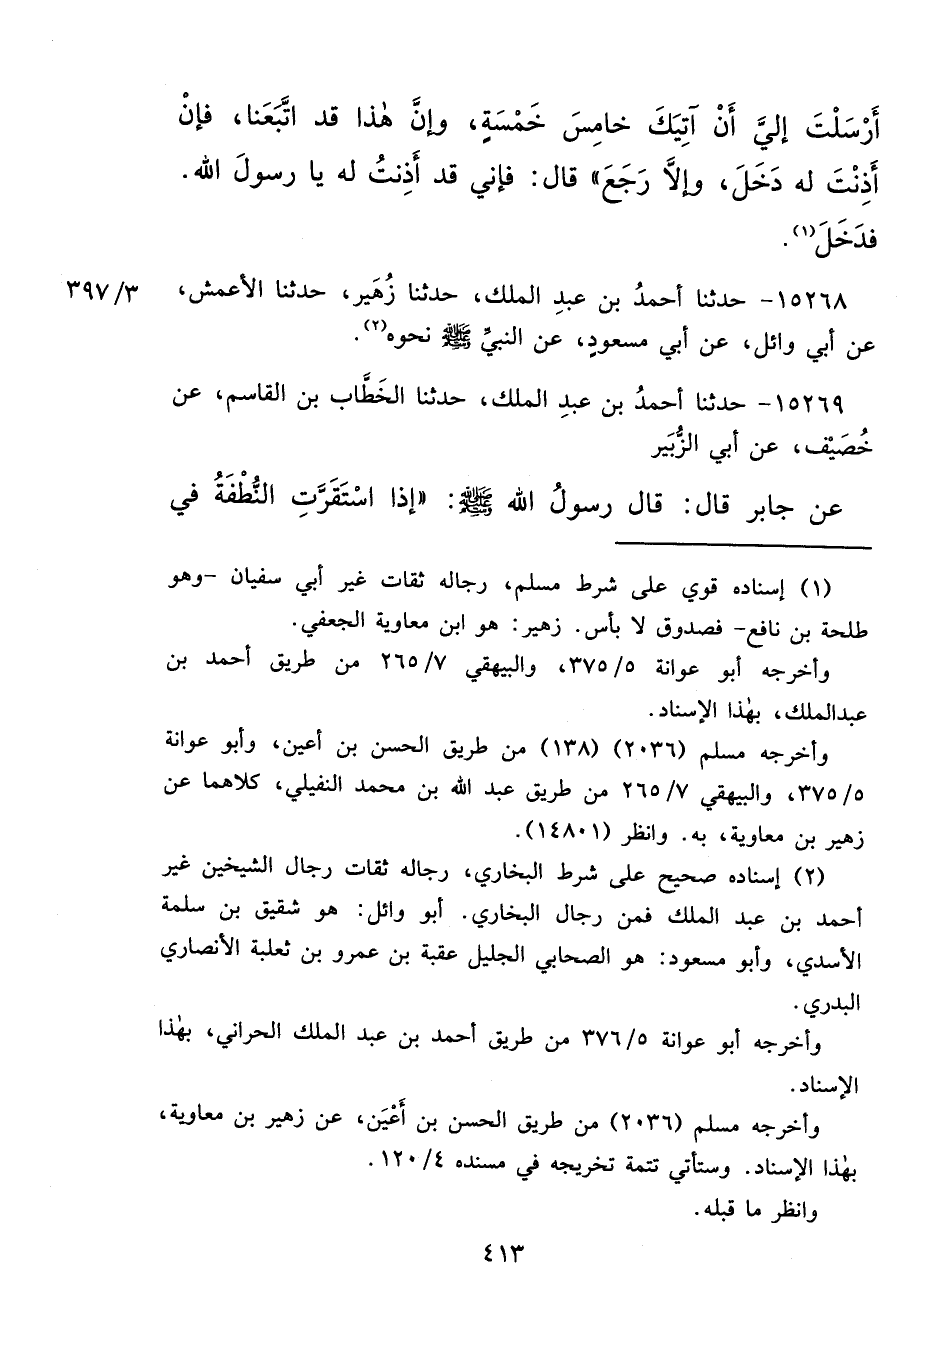 أَرْسَلْتَ إليَّ أَنْ آتِيَكَ خامِسَ خَمْسَةٍ، وإنَّ هٰذا قد اتَّبَعَنا، فإنْ
أَذِنْتَ له دَخَلَ، وإلاَّ رَجَعَ» قال: فإني قد أَذِنتُ له يا رسولَ الله.
فدَخَلَ(١).
١٥٢٦٨- حدثنا أحمدُ بن عبدِ الملك، حدثنا زُهَير، حدثنا الأعمش، ٣٩٧/٣
عن أبي وائل، عن أبي مسعودٍ، عن النبيِّ ﷺ نحوه(٢).
١٥٢٦٩- حدثنا أحمدُ بن عبدِ الملك، حدثنا الخَطَّاب بن القاسم، عن
خُصَيْف، عن أبي الزُّبَير
عن جابر قال: قال رسولُ الله ﷺ: «إذا اسْتَقَرَّتِ النُّطْفَةُ في
(١) إسناده قوي على شرط مسلم، رجاله ثقات غير أبي سفيان -وهو
طلحة بن نافع- فصدوق لا بأس. زهير: هو ابن معاوية الجعفي.
وأخرجه أبو عوانة ٣٧٥/٥، والبيهقي ٢٦٥/٧ من طريق أحمد بن
عبدالملك، بهٰذا الإسناد.
وأخرجه مسلم (٢٠٣٦) (١٣٨) من طريق الحسن بن أعين، وأبو عوانة
٣٧٥/٥، والبيهقي ٢٦٥/٧ من طريق عبد الله بن محمد النفيلي، كلاهما عن
زهير بن معاوية، به. وانظر (١٤٨٠١).
(٢) إسناده صحيح على شرط البخاري، رجاله ثقات رجال الشيخين غير
أحمد بن عبد الملك فمن رجال البخاري. أبو وائل: هو شقيق بن سلمة
الأسدي، وأبو مسعود: هو الصحابي الجليل عقبة بن عمرو بن ثعلبة الأنصاري
البدري.
وأخرجه أبو عوانة ٣٧٦/٥ من طريق أحمد بن عبد الملك الحراني، بهٰذا
الإسناد.
وأخرجه مسلم (٢٠٣٦) من طريق الحسن بن أَعْيَن، عن زهير بن معاوية،
بهٰذا الإسناد. وستأتي تتمة تخريجه في مسنده ١٢٠/٤.
وانظر ما قبله.
٤١٣